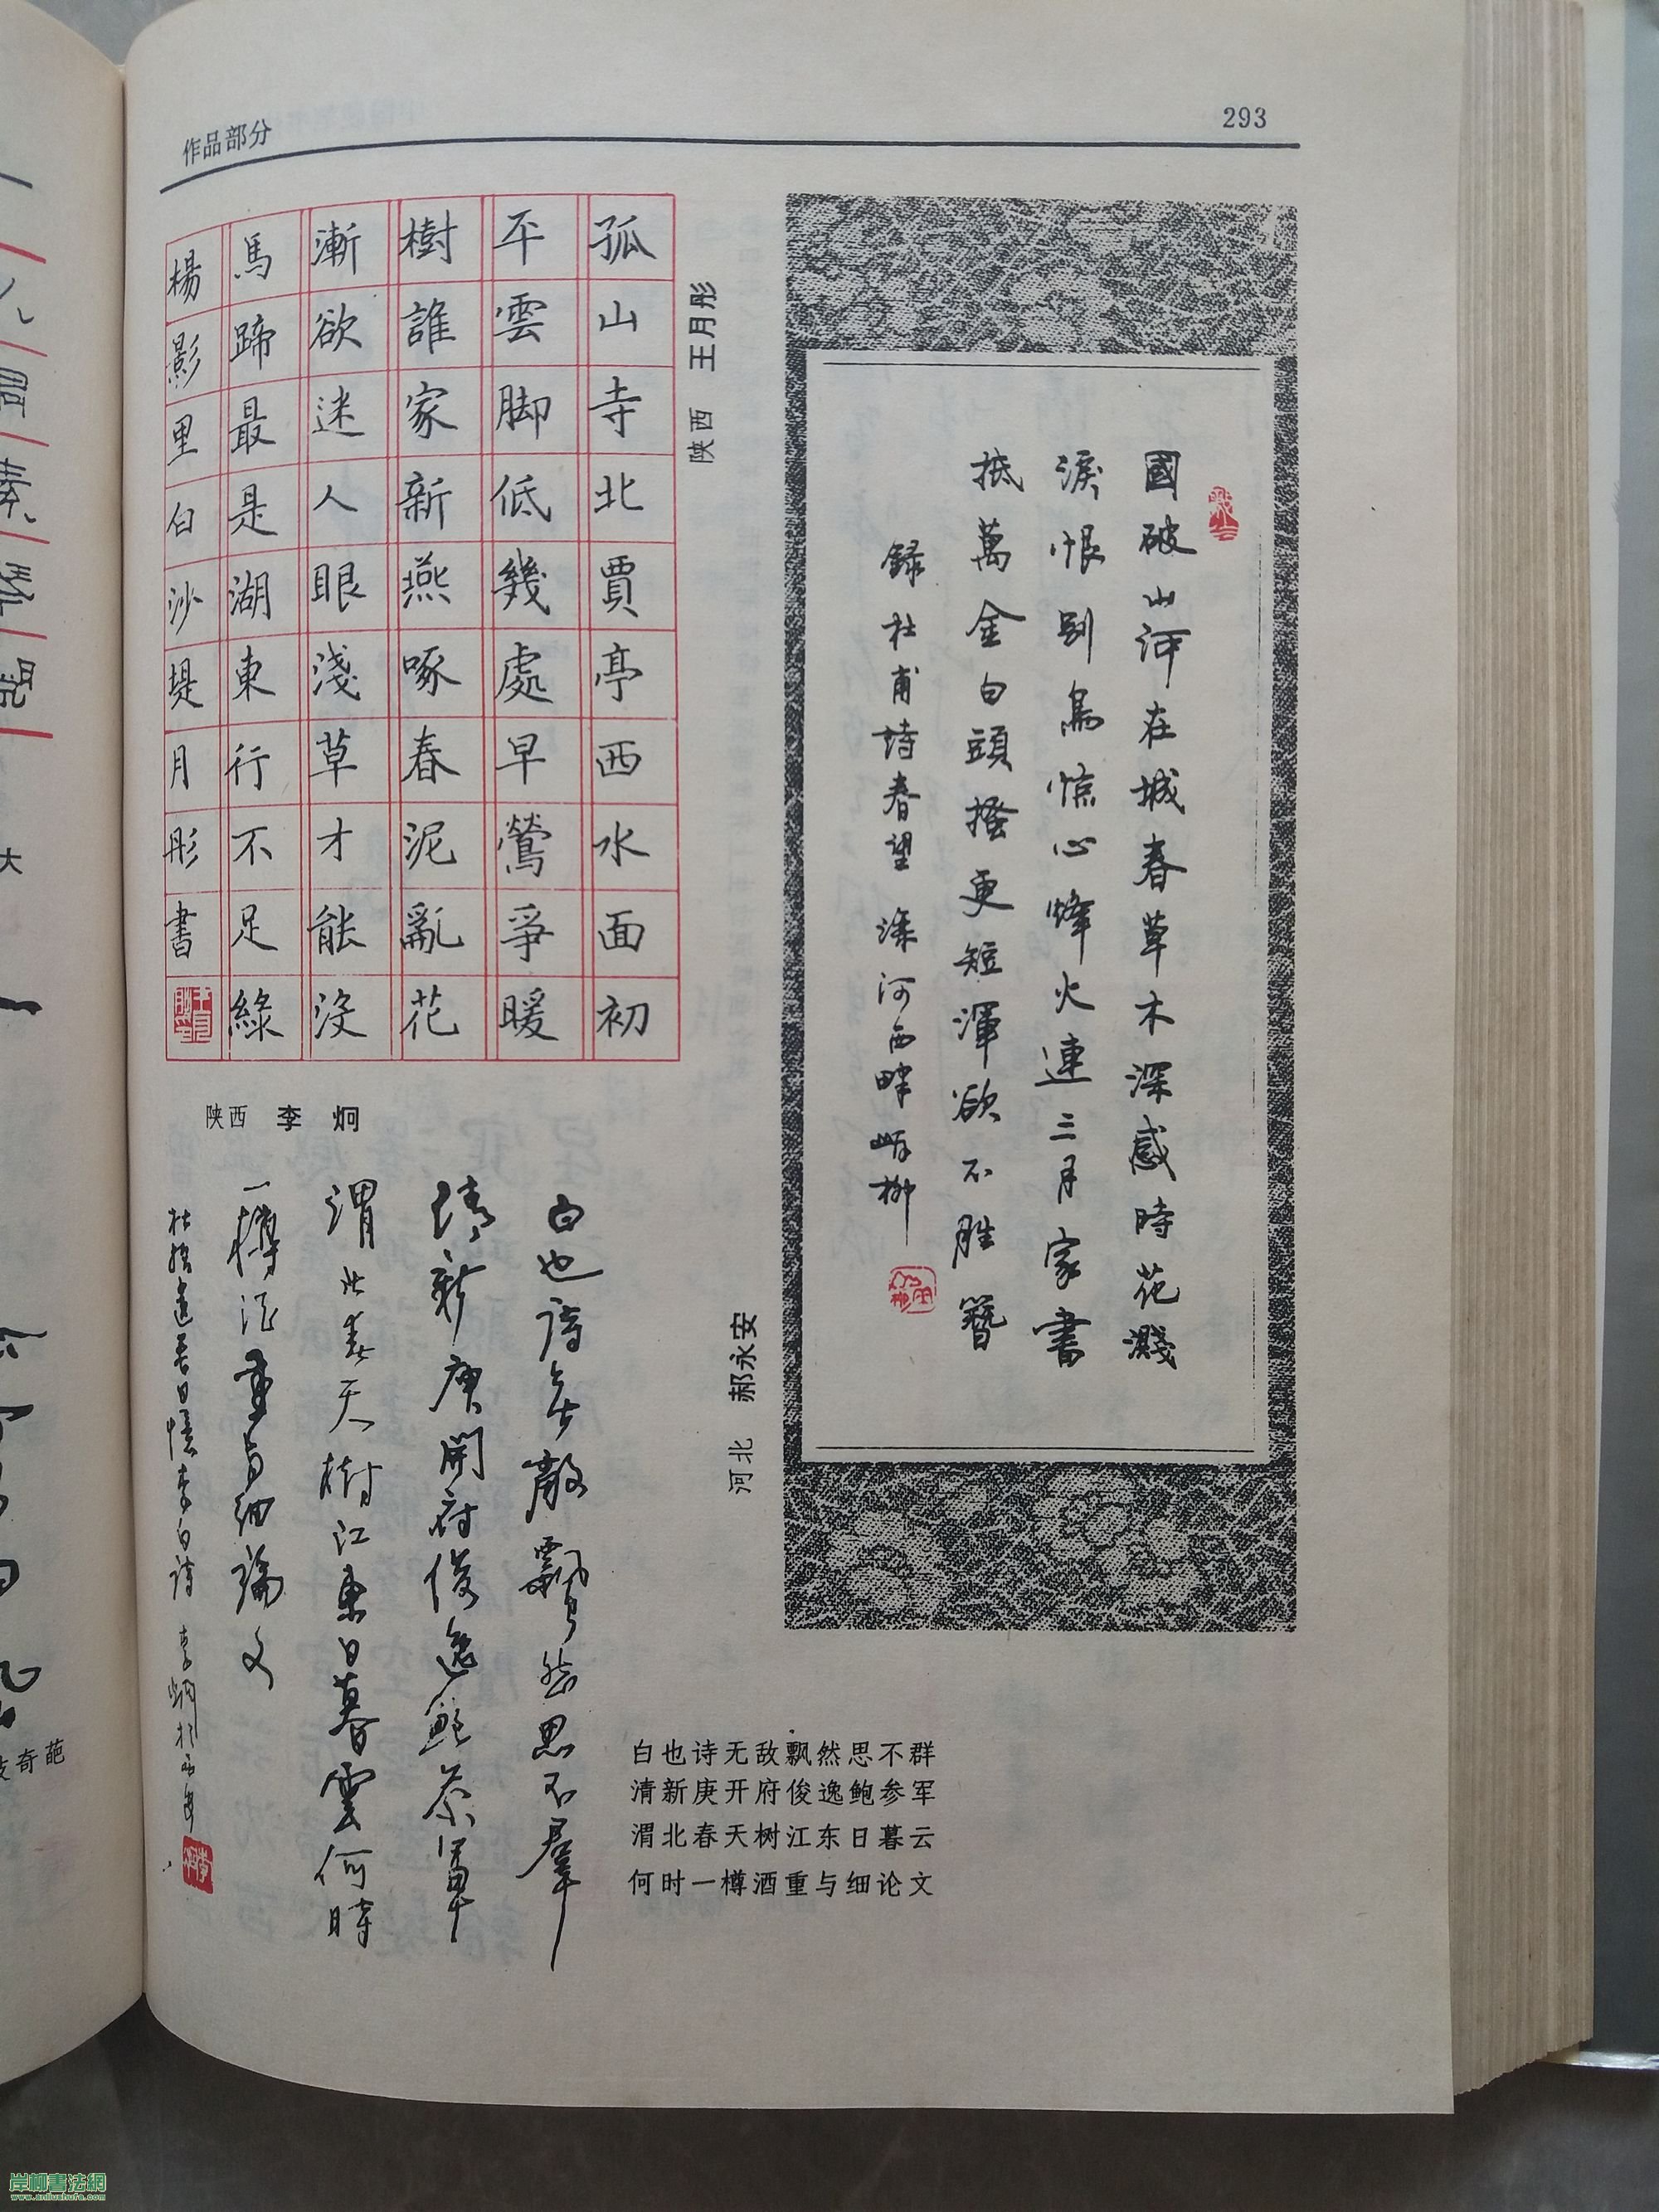 作品部分
293
國破山河在城春草木深感時花濺
淚恨别鳥惊心烽火連三月家書
抵萬金白頭搔更短渾欲不胜簪
録杜甫詩春望 滦河西畔岸柳
河北 郝永安
孤山寺北賈亭西水面初
平雲脚低幾處早鶯爭暖
樹誰家新燕啄春泥亂花
漸欲迷人眼淺草才能没
馬蹄最是湖東行不足綠
楊影里白沙堤月彤書
陕西 王月彤
陕西 李炯
白也詩無敵飄然思不羣
清新庾開府俊逸鲍参軍
渭北春天樹江東日暮雲何時
一樽酒重与细論文
杜拾遺春日憶李白詩 李炯
白也诗无敌飘然思不群
清新庾开府俊逸鲍参军
渭北春天树江东日暮云
何时一樽酒重与细论文
技奇葩
大
岸柳書法網
www.anliushufa.com